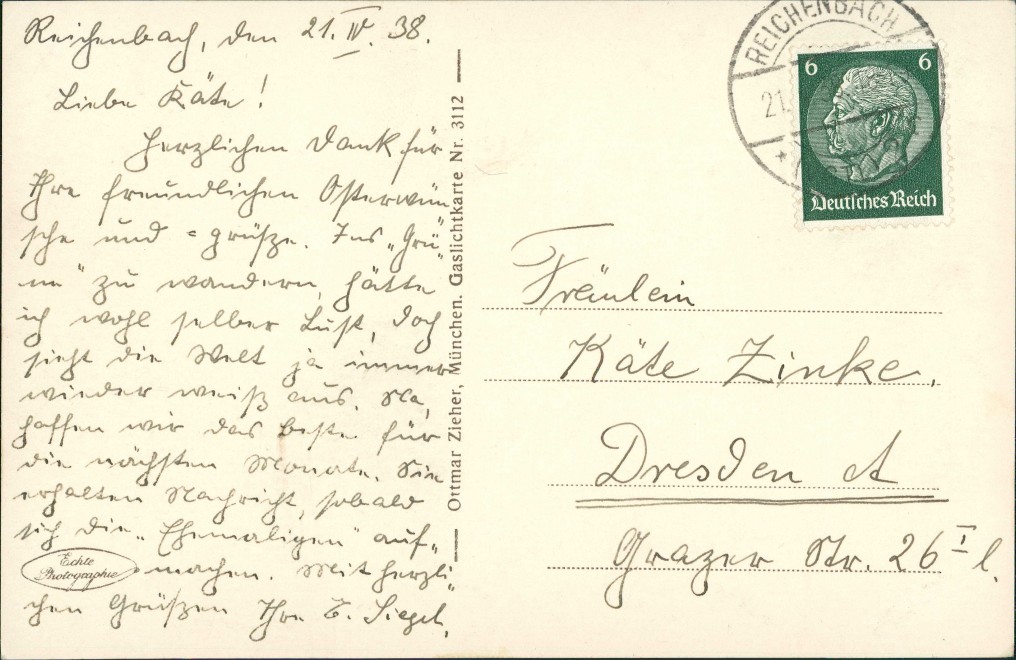 Reichenbach, den 21. IV. 38.
Liebe Käte!
Herzlichen Dank für
Ihre freundlichen Osterwün-
sche und =grüße. Ins „Grü-
ne" zu wandern, hätte
ich wohl selber Lust, doch
sieht die Welt ja immer
wieder weiß aus. Na,
hoffen wir das beste für
die nächsten Monate. Sie
erhalten Nachricht, sobald
sich die „Ehemaligen" auf-
machen. Mit herzli-
chen Grüßen Ihre E. Siegel.
Echte
Photographie
Ottmar Zieher, München. Gaslichtkarte Nr. 3112
REICHENBACH
21.
6 6
Deutsches Reich
Fräulein
Käte Zinke.
Dresden A
Grazer Str. 26 I l.